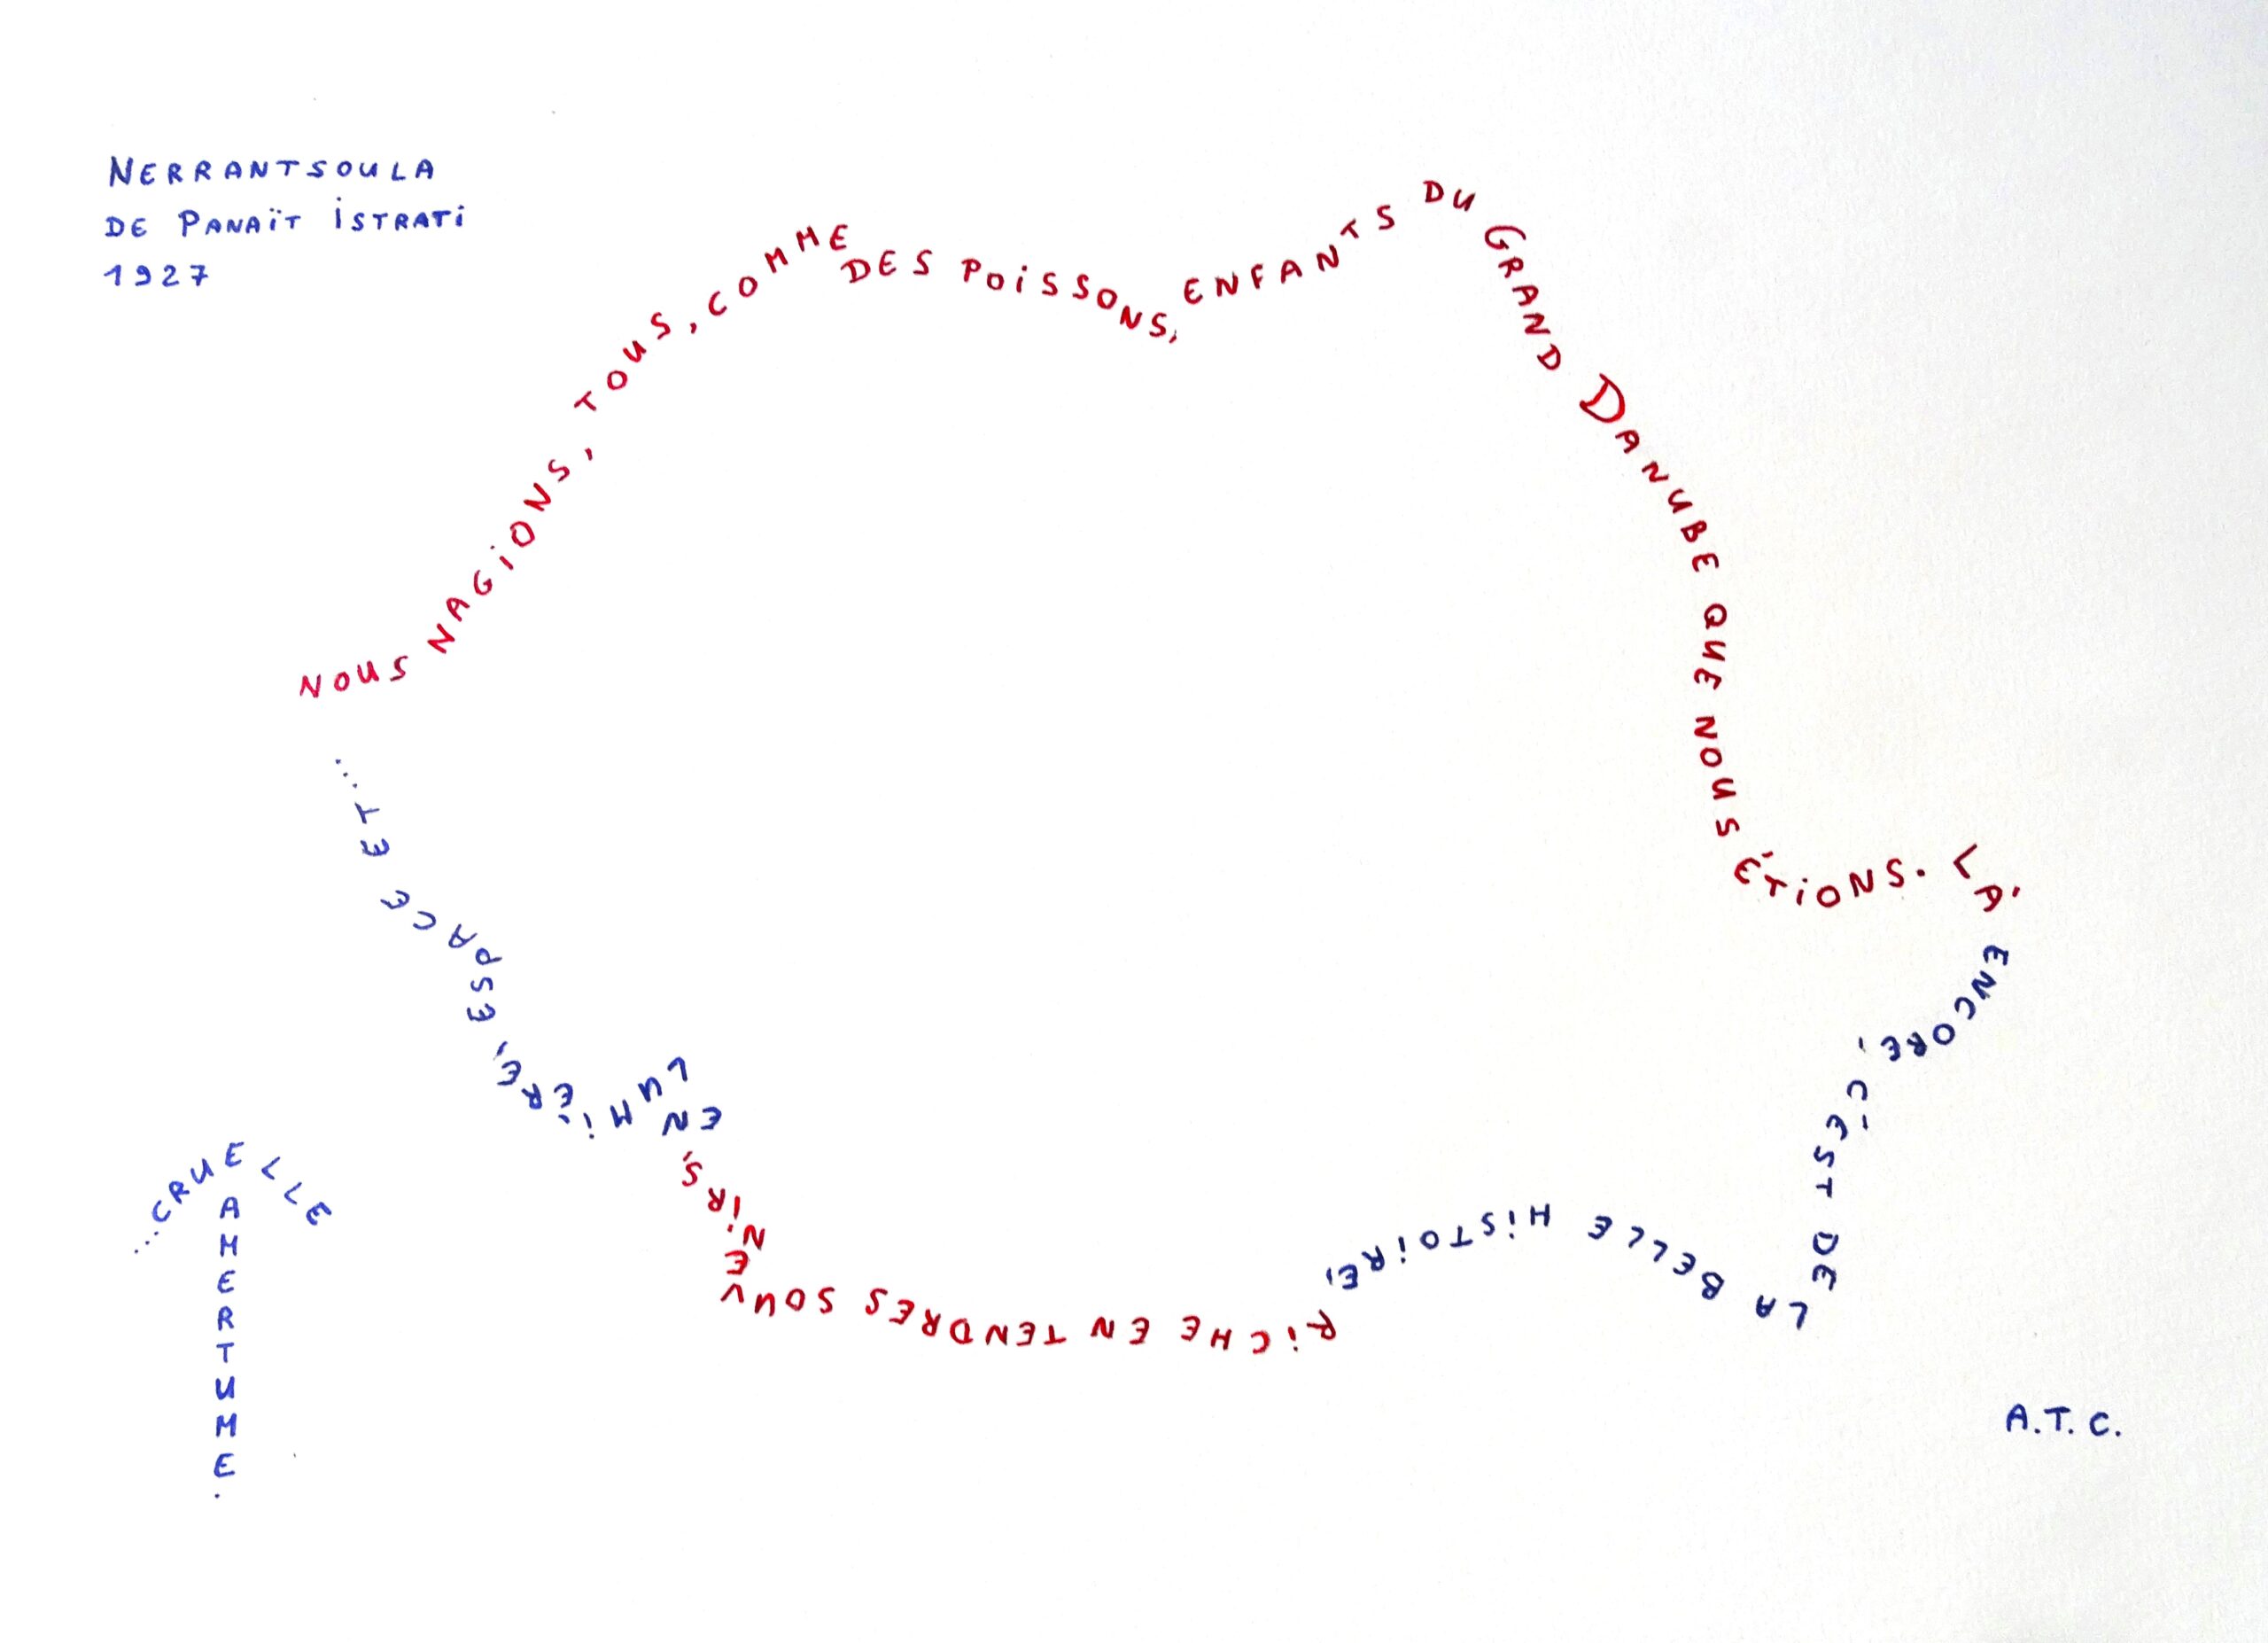 NERRANTSOULA
DE PANAÏT ISTRATI
1927
NOUS NAGIONS, TOUS, COMME DES POISSONS, ENFANTS DU GRAND DANUBE QUE NOUS ÉTIONS. LÀ ENCORE, C'EST DE LA BELLE HISTOIRE, RICHE EN TENDRES SOUVENIRS, EN LUMIÈRE, ESPACE ET...
...CRUELLE
AMERTUME.
A.T.C.